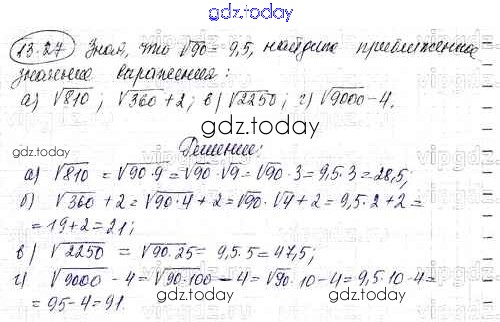 gdz.today
13.27 Зная, что √90 = 9,5, найдите приближенные
значения выражения:
а) √810 ; √360 + 2 ; в) √2250 ; г) √9000 - 4.
gdz.today
Решение:
а) √810 = √90·9 = √90·√9 = √90·3 = 9,5·3 = 28,5;
б) √360 + 2 = √90·4 + 2 = √90·√4 + 2 = 9,5·2 + 2 =
= 19 + 2 = 21;
в) √2250 = √90·25 = 9,5·5 = 47,5;
г) √9000 - 4 = √90·100 - 4 = √90·10 - 4 = 9,5·10 - 4 =
= 95 - 4 = 91.
gdz.today